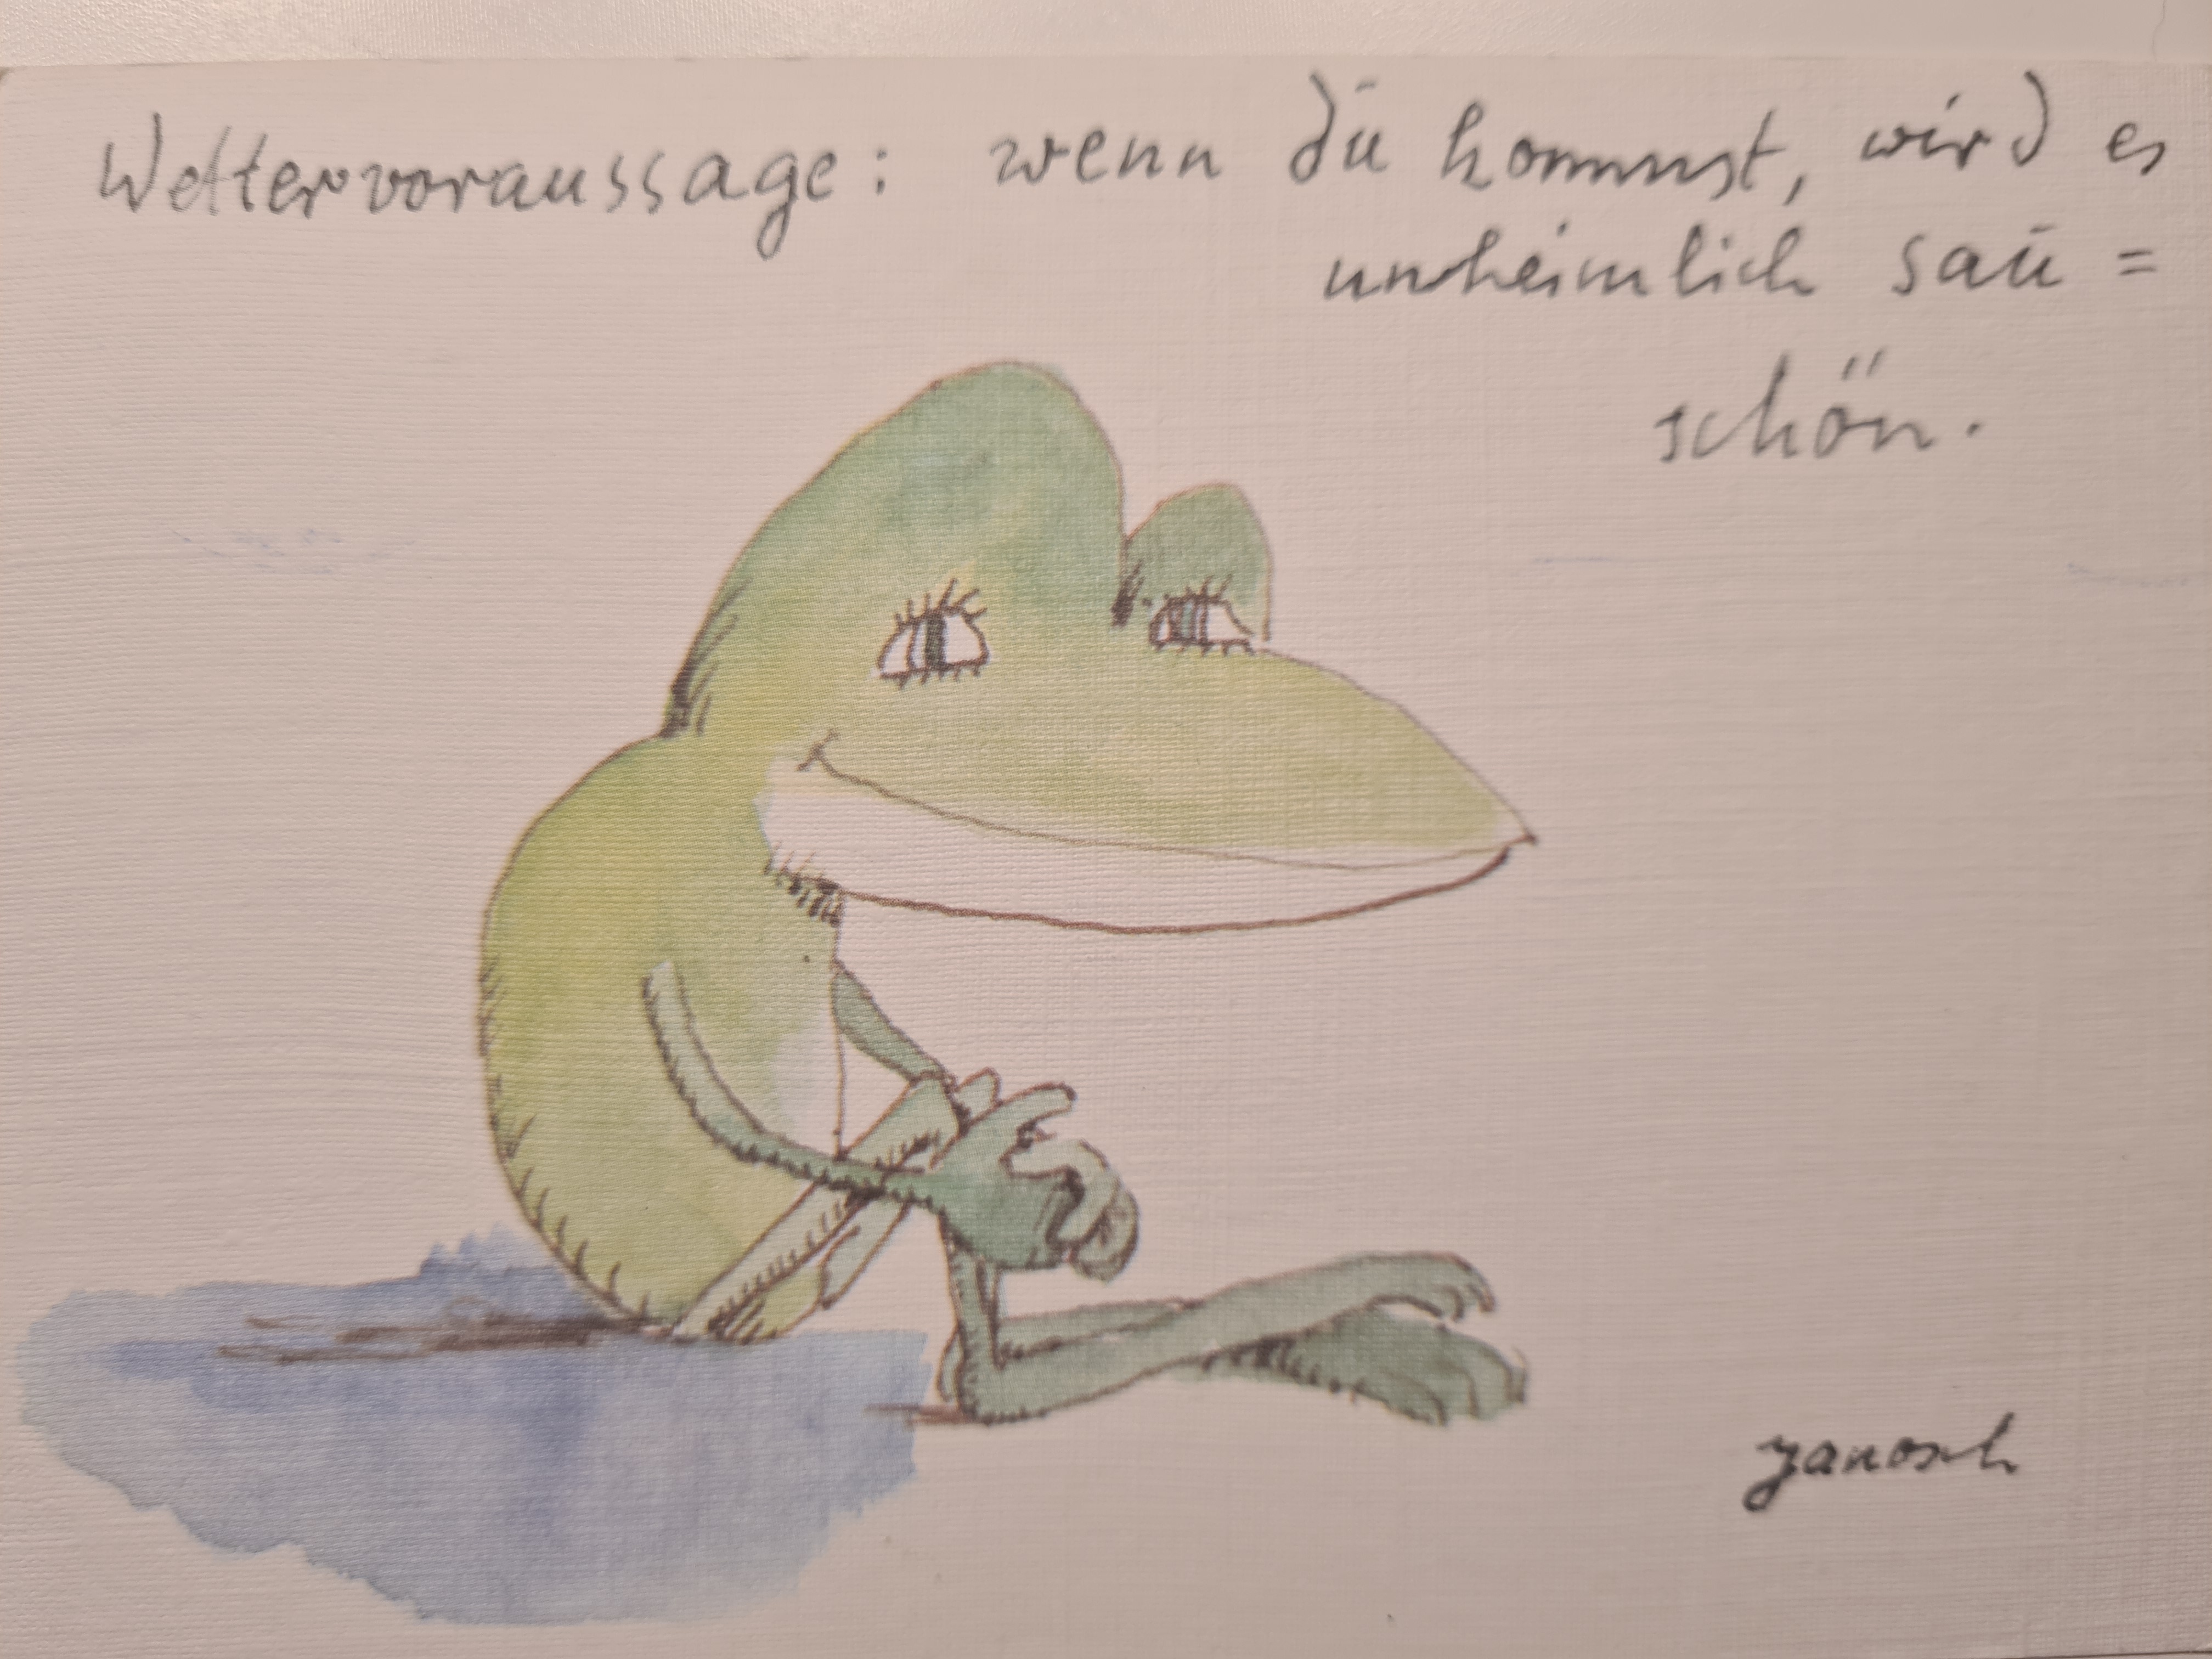 Wettervoraussage: wenn du kommst, wird es
unheimlich sau=
schön.
janosch